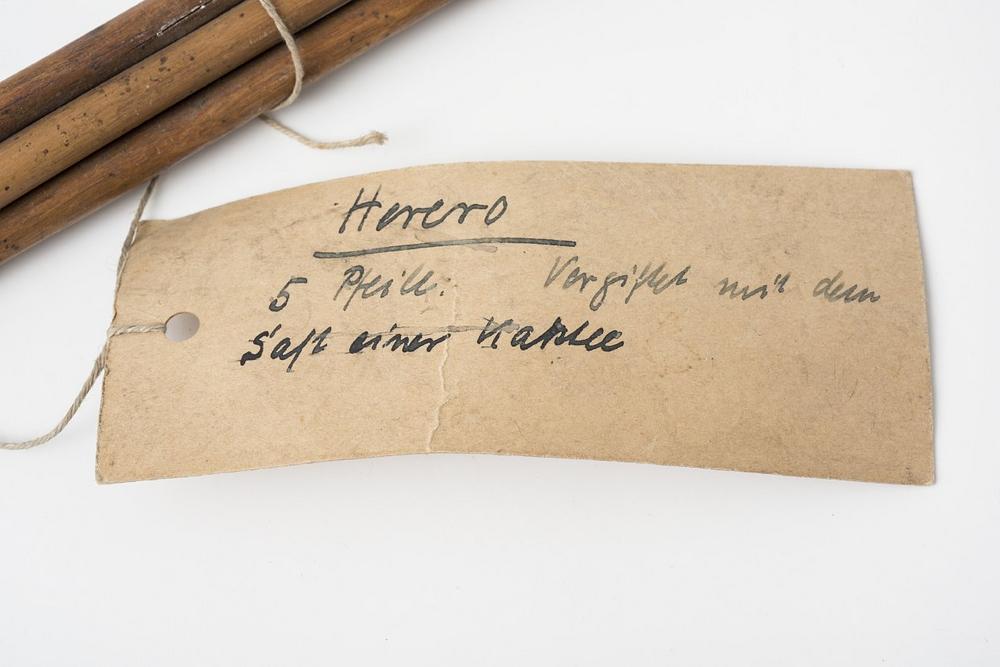 Herero
5 Pfeile. Vergiftet mit dem
Saft einer Kaktee